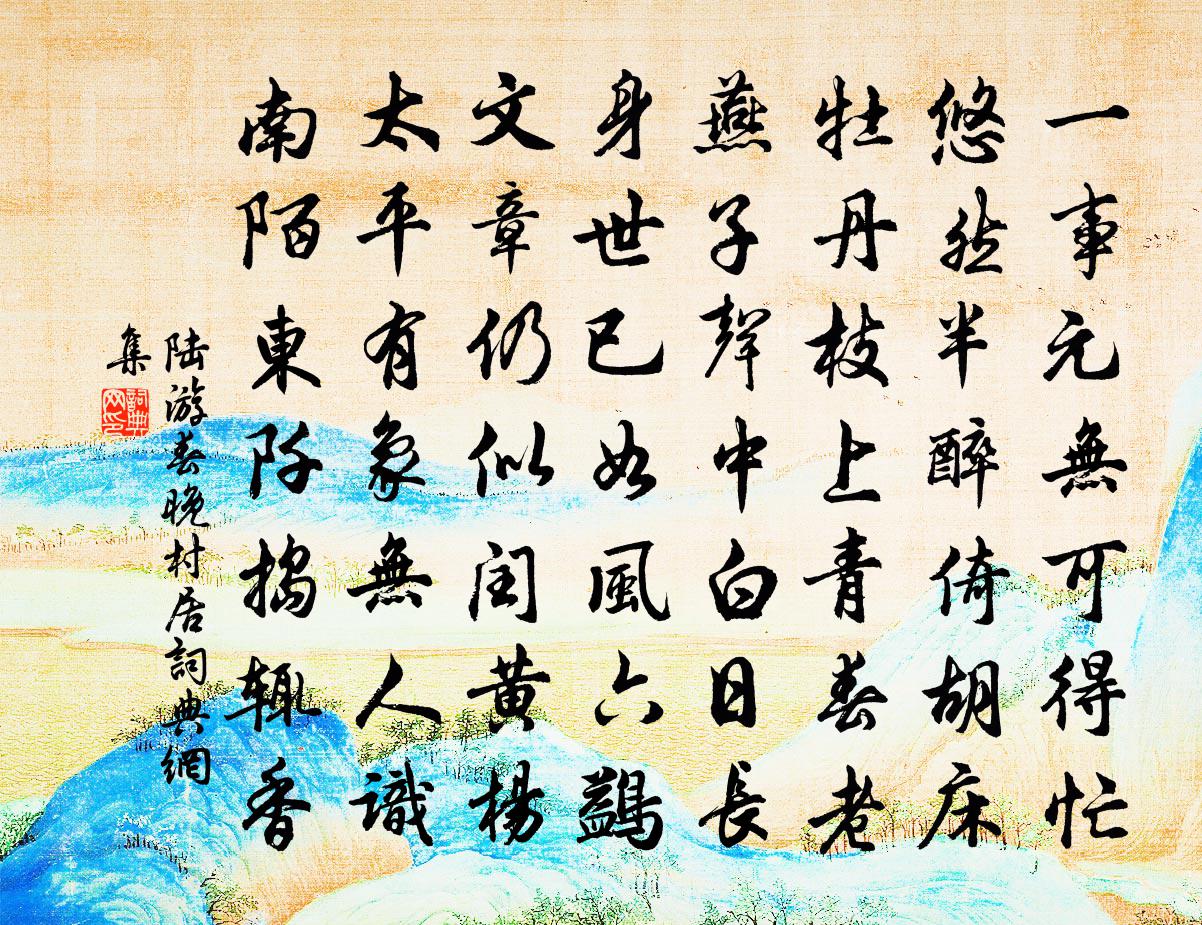 一事元無可得忙
悠然半醉倚胡床
牡丹枝上青春老
燕子聲中白日長
身世已如風六鷁
文章仍似閏黃楊
太平有象無人識
南陌東阡搗麨香
陆游春晚村居詞典網
集
詞典
网印